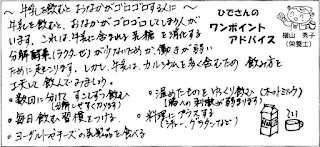 ～ 牛乳を飲むと おなかがゴロゴロする人に ～
牛乳を飲むと、おなかがゴロゴロしてしまう人が
います。これは、牛乳に含まれる乳糖を消化する
分解酵素(ラクターゼ)が少ないためか、働きが弱い
ために起こります。しかし、牛乳は、カルシウムを多く含むため 飲み方を
工夫して飲んでみましょう。
・数回に分けて すこしずつ飲む
(分解しやすくなります)
・毎日飲む習慣をつける
・ヨーグルトやチーズの乳製品を食べる
・温めたものをゆっくり飲む (ホットミルク)
(腸への刺激が弱まります)
・料理にプラスする
(シチュー、グラタンなど)
ひでさんの
ワンポイント
アドバイス
横山 秀子
(栄養士)